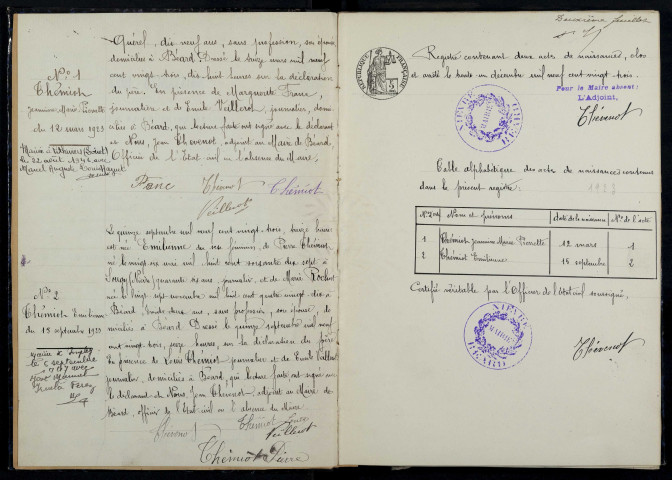 N° 1
Thémiot
Jeannine Marie Pierrette
du 12 mars 1923
Mariée à
le 22 avril 1946 avec
Marcel Auguste
Quérel, dix neuf ans, sans profession, son épouse
domiciliés à Béard. Dressé le treize mars mil neuf
cent vingt trois, dix huit heures sur la déclaration
du père. En présence de Marguerite Franc
journalière et de Emile Veillerot, journalier, domi-
ciliés à Béard, qui lecture faite ont signé avec le déclarant
et Nous, Jean Thévenot, adjoint au Maire de Béard,
Officier de l'Etat civil en l'absence du Maire.
Franc Thémiot Thévenot
Veillerot
N° 2
Thémiot Emilienne
du 15 septembre 1923
Mariée à
le 6 septembre
avec
Le quinze septembre mil neuf cent vingt trois, seize heures
est née Emilienne du sexe féminin, de Pierre Thémiot
né le vingt six mai mil huit cent soixante dix sept à
quarante six ans, journalier, et de Marie
née le vingt sept novembre mil huit cent quatre vingt dix à
Béard, trente deux ans, sans profession, son épouse, do-
miciliés à Béard. Dressé le quinze septembre mil neuf
cent vingt trois, heures, sur la déclaration du père
En présence de Louis Thémiot journalier et de Emile Veillerot
journalier, domiciliés à Béard, qui lecture faite ont signé avec
le déclarant et Nous, Jean Thévenot, adjoint au Maire de
Béard, officier de l'Etat civil en l'absence du Maire
Thévenot Thémiot Louis
Veillerot
Thémiot Pierre
Deuxième feuillet
REPUBLIQUE FRANÇAISE
Registre contenant deux actes de naissances, clos
et arrêté le trente un décembre mil neuf cent vingt trois.
Pour le Maire absent:
L'Adjoint,
Thévenot
MAIRIE
BEARD
NIEVRE
Table alphabétique des actes de naissances contenus
dans le présent registre: 1923
Nos d'ordre Noms et prénoms date de la naissance Nos de l'acte
1 Thémiot Jeannine Marie Pierrette 12 mars 1
2 Thémiot Emilienne 15 septembre 2
Certifié véritable par l'Officier de l'Etat civil soussigné,
MAIRIE
BEARD
NIEVRE
Thévenot